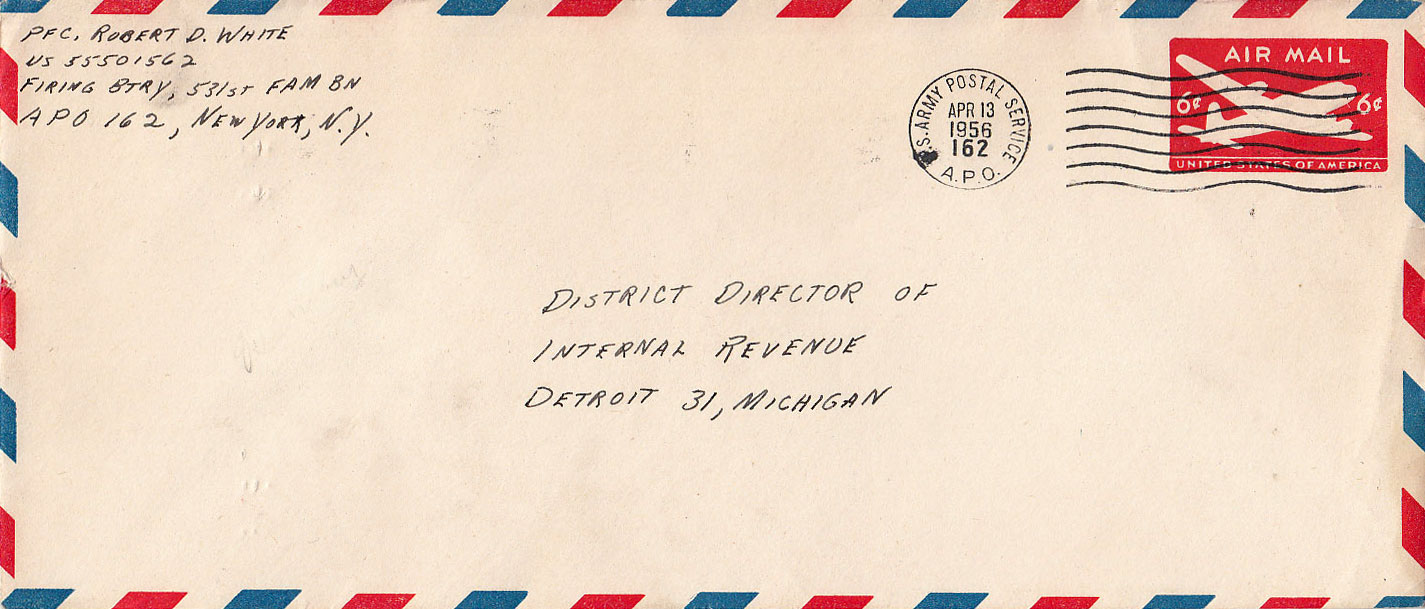 PFC. ROBERT D. WHITE
US 55501562
FIRING BTRY, 531ST FAM BN
APO 162, NEW YORK, N.Y.
U.S. ARMY POSTAL SERVICE
APR 13
1956
162
A.P.O.
AIR MAIL
6¢ 6¢
UNITED STATES OF AMERICA
DISTRICT DIRECTOR OF
INTERNAL REVENUE
DETROIT 31, MICHIGAN